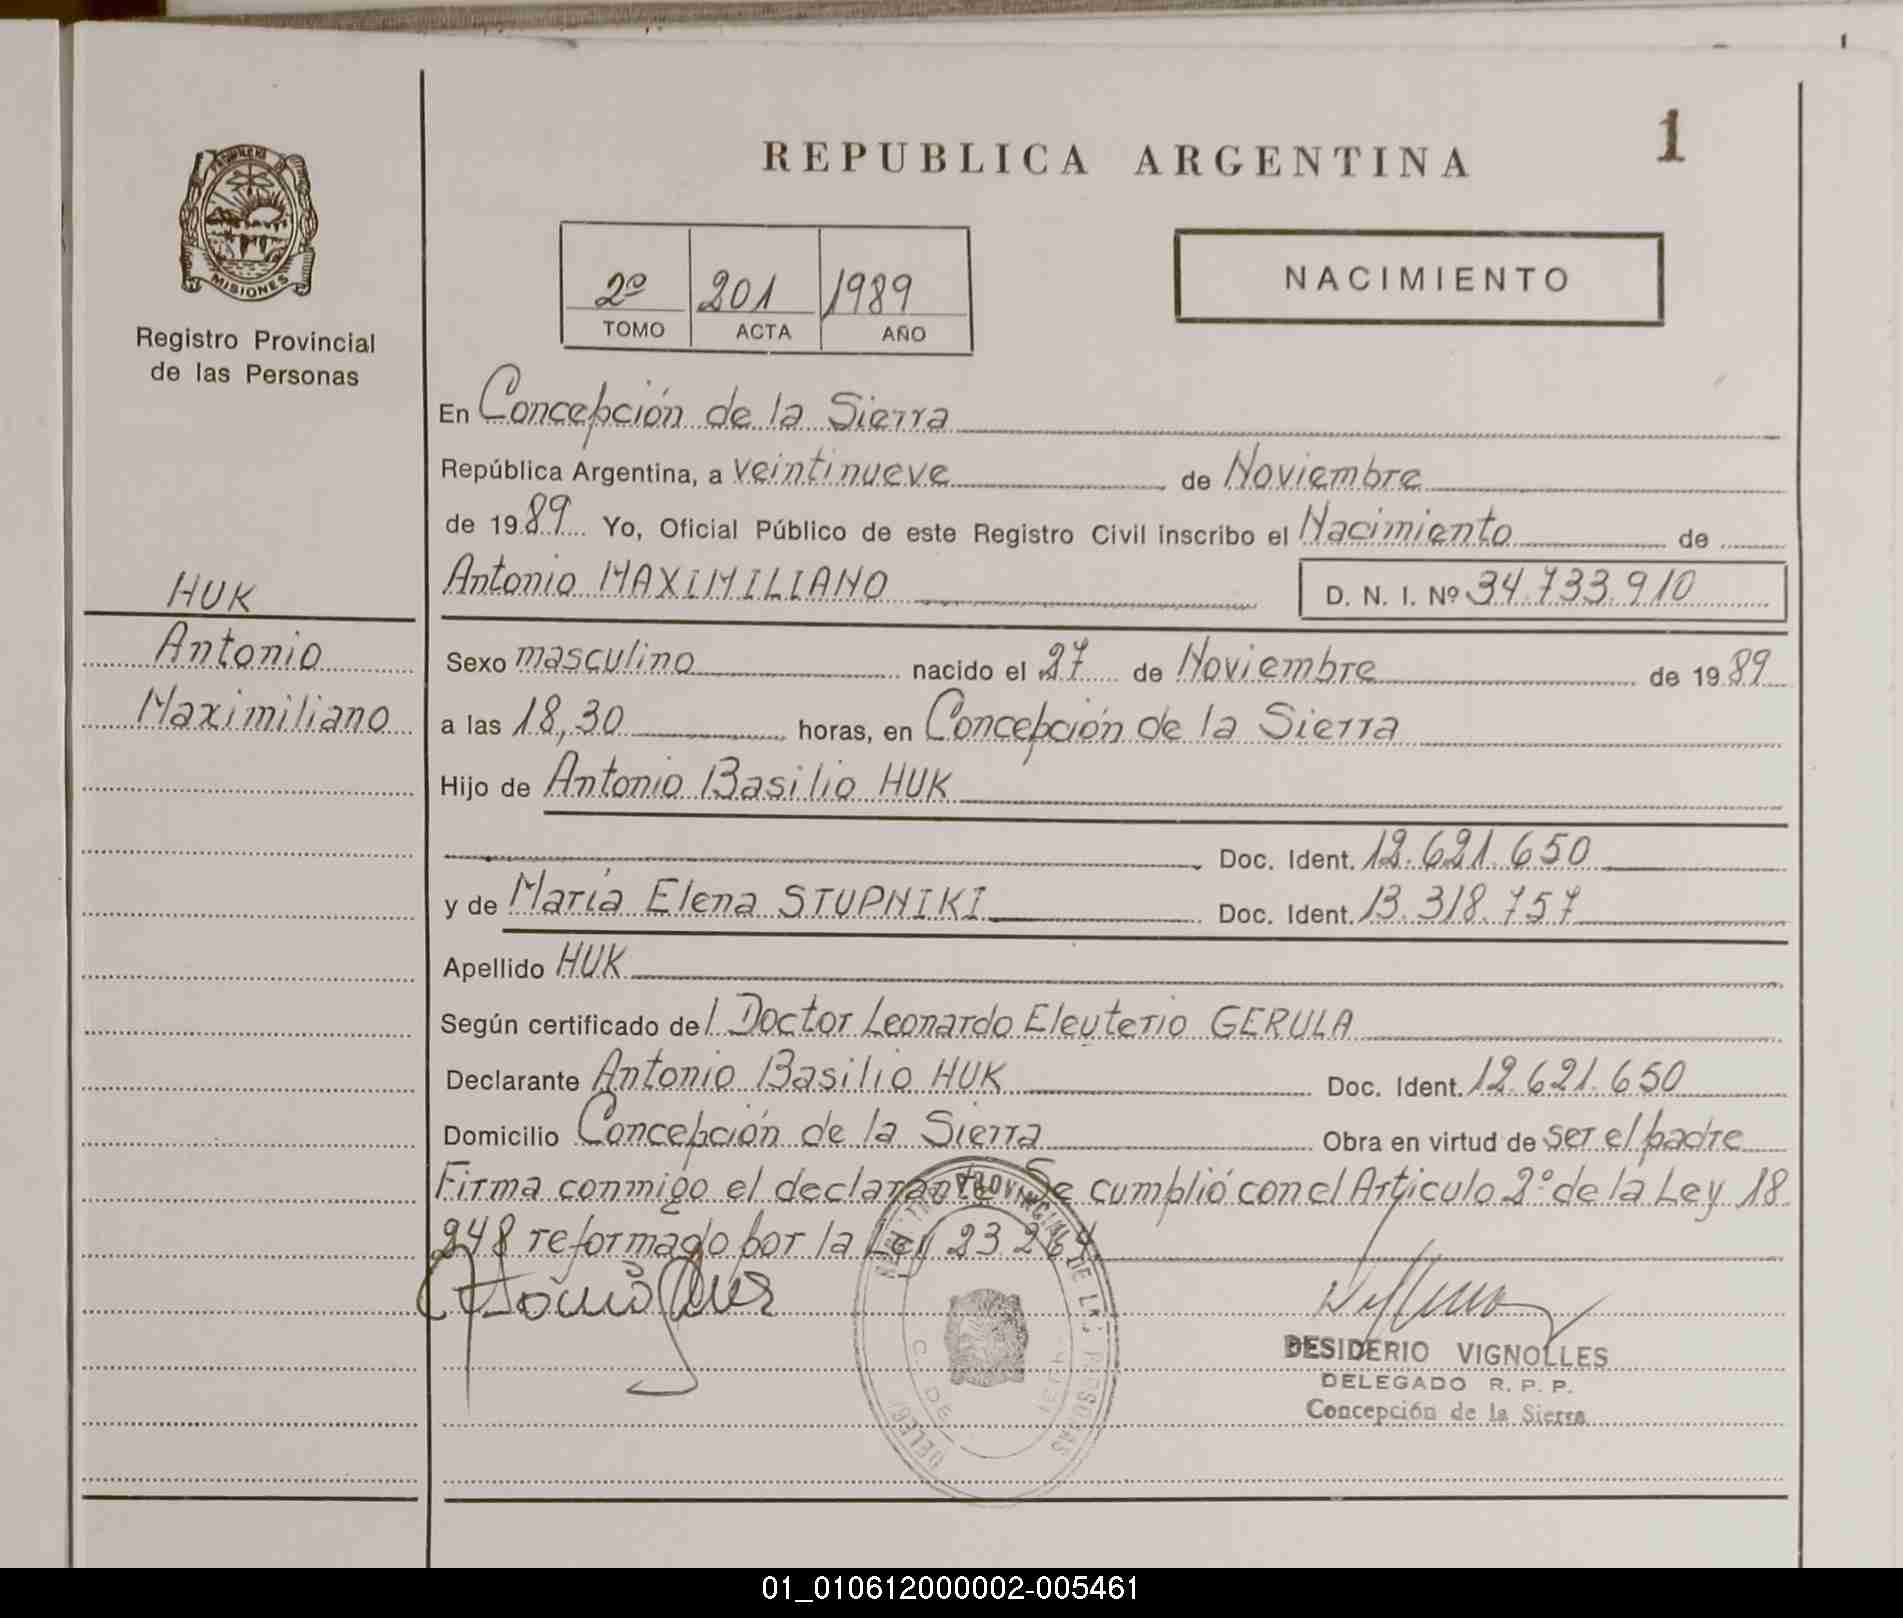 REPUBLICA ARGENTINA
1
MISIONES
Registro Provincial
de las Personas
2º 201 1989
TOMO ACTA AÑO
NACIMIENTO
En Concepción de la Sierra
República Argentina, a veintinueve de Noviembre
de 1989 Yo, Oficial Público de este Registro Civil inscribo el Nacimiento de
Antonio MAXIMILIANO D. N. I. Nº 34.733.910
HUK
Antonio
Maximiliano
Sexo masculino nacido el 27 de Noviembre de 1989
a las 18,30 horas, en Concepción de la Sierra
Hijo de Antonio Basilio HUK
Doc. Ident. 12.621.650
y de María Elena STUPNIKI Doc. Ident. 13.318.757
Apellido HUK
Según certificado del Doctor Leonardo Eleuterio GERULA
Declarante Antonio Basilio HUK Doc. Ident. 12.621.650
Domicilio Concepción de la Sierra Obra en virtud de ser el padre
Firma conmigo el declarante Se cumplió con el Artículo 2º de la Ley 18.
248 reformado por la Ley 23.264
DESIDERIO VIGNOLLES
DELEGADO R. P. P.
Concepción de la Sierra
01_010612000002-005461